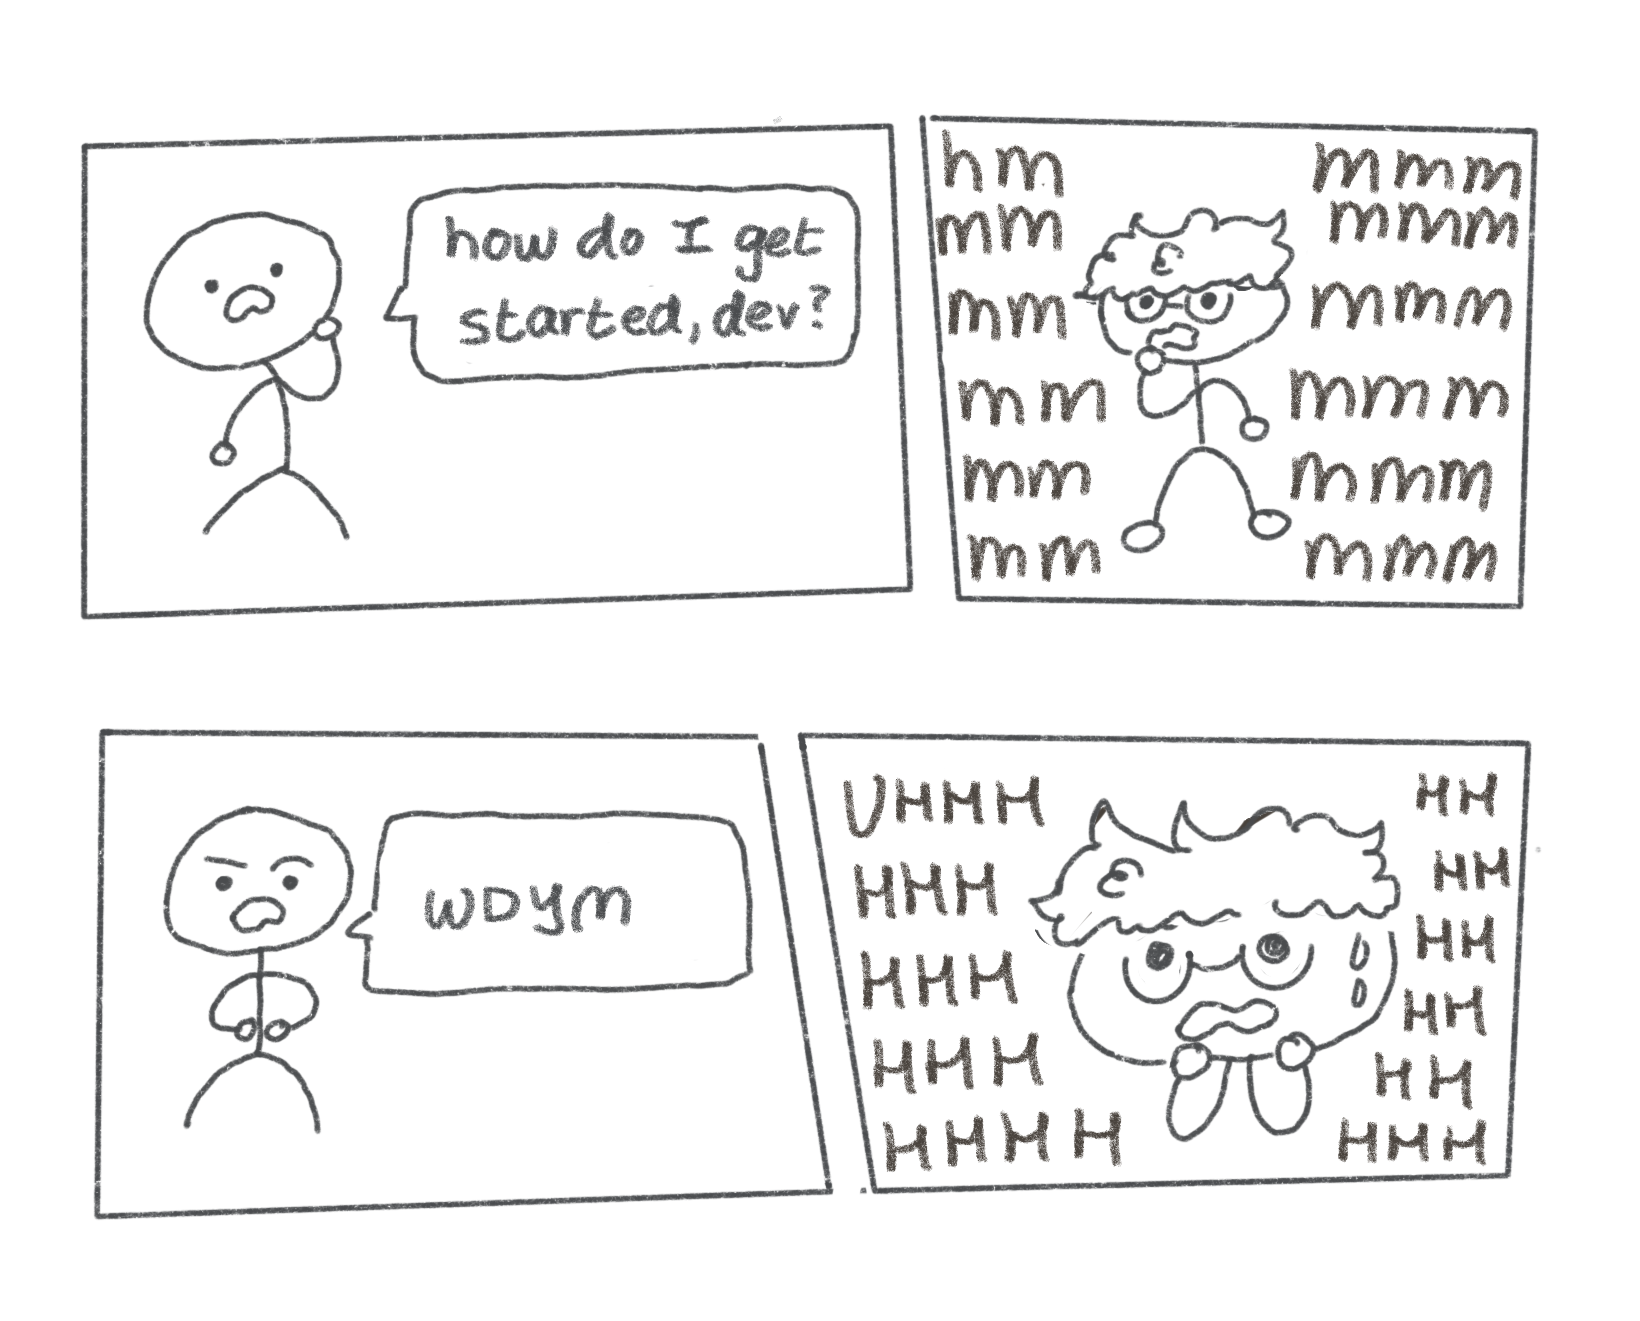 how do I get
started, dev?
hm mmm
mm mmm
mm mmm
mm mmm
mm mmm
mm mmm
WDYM
UHHH HH
HHH HH
HHH HH
HHH HH
HHHH HH
HHH